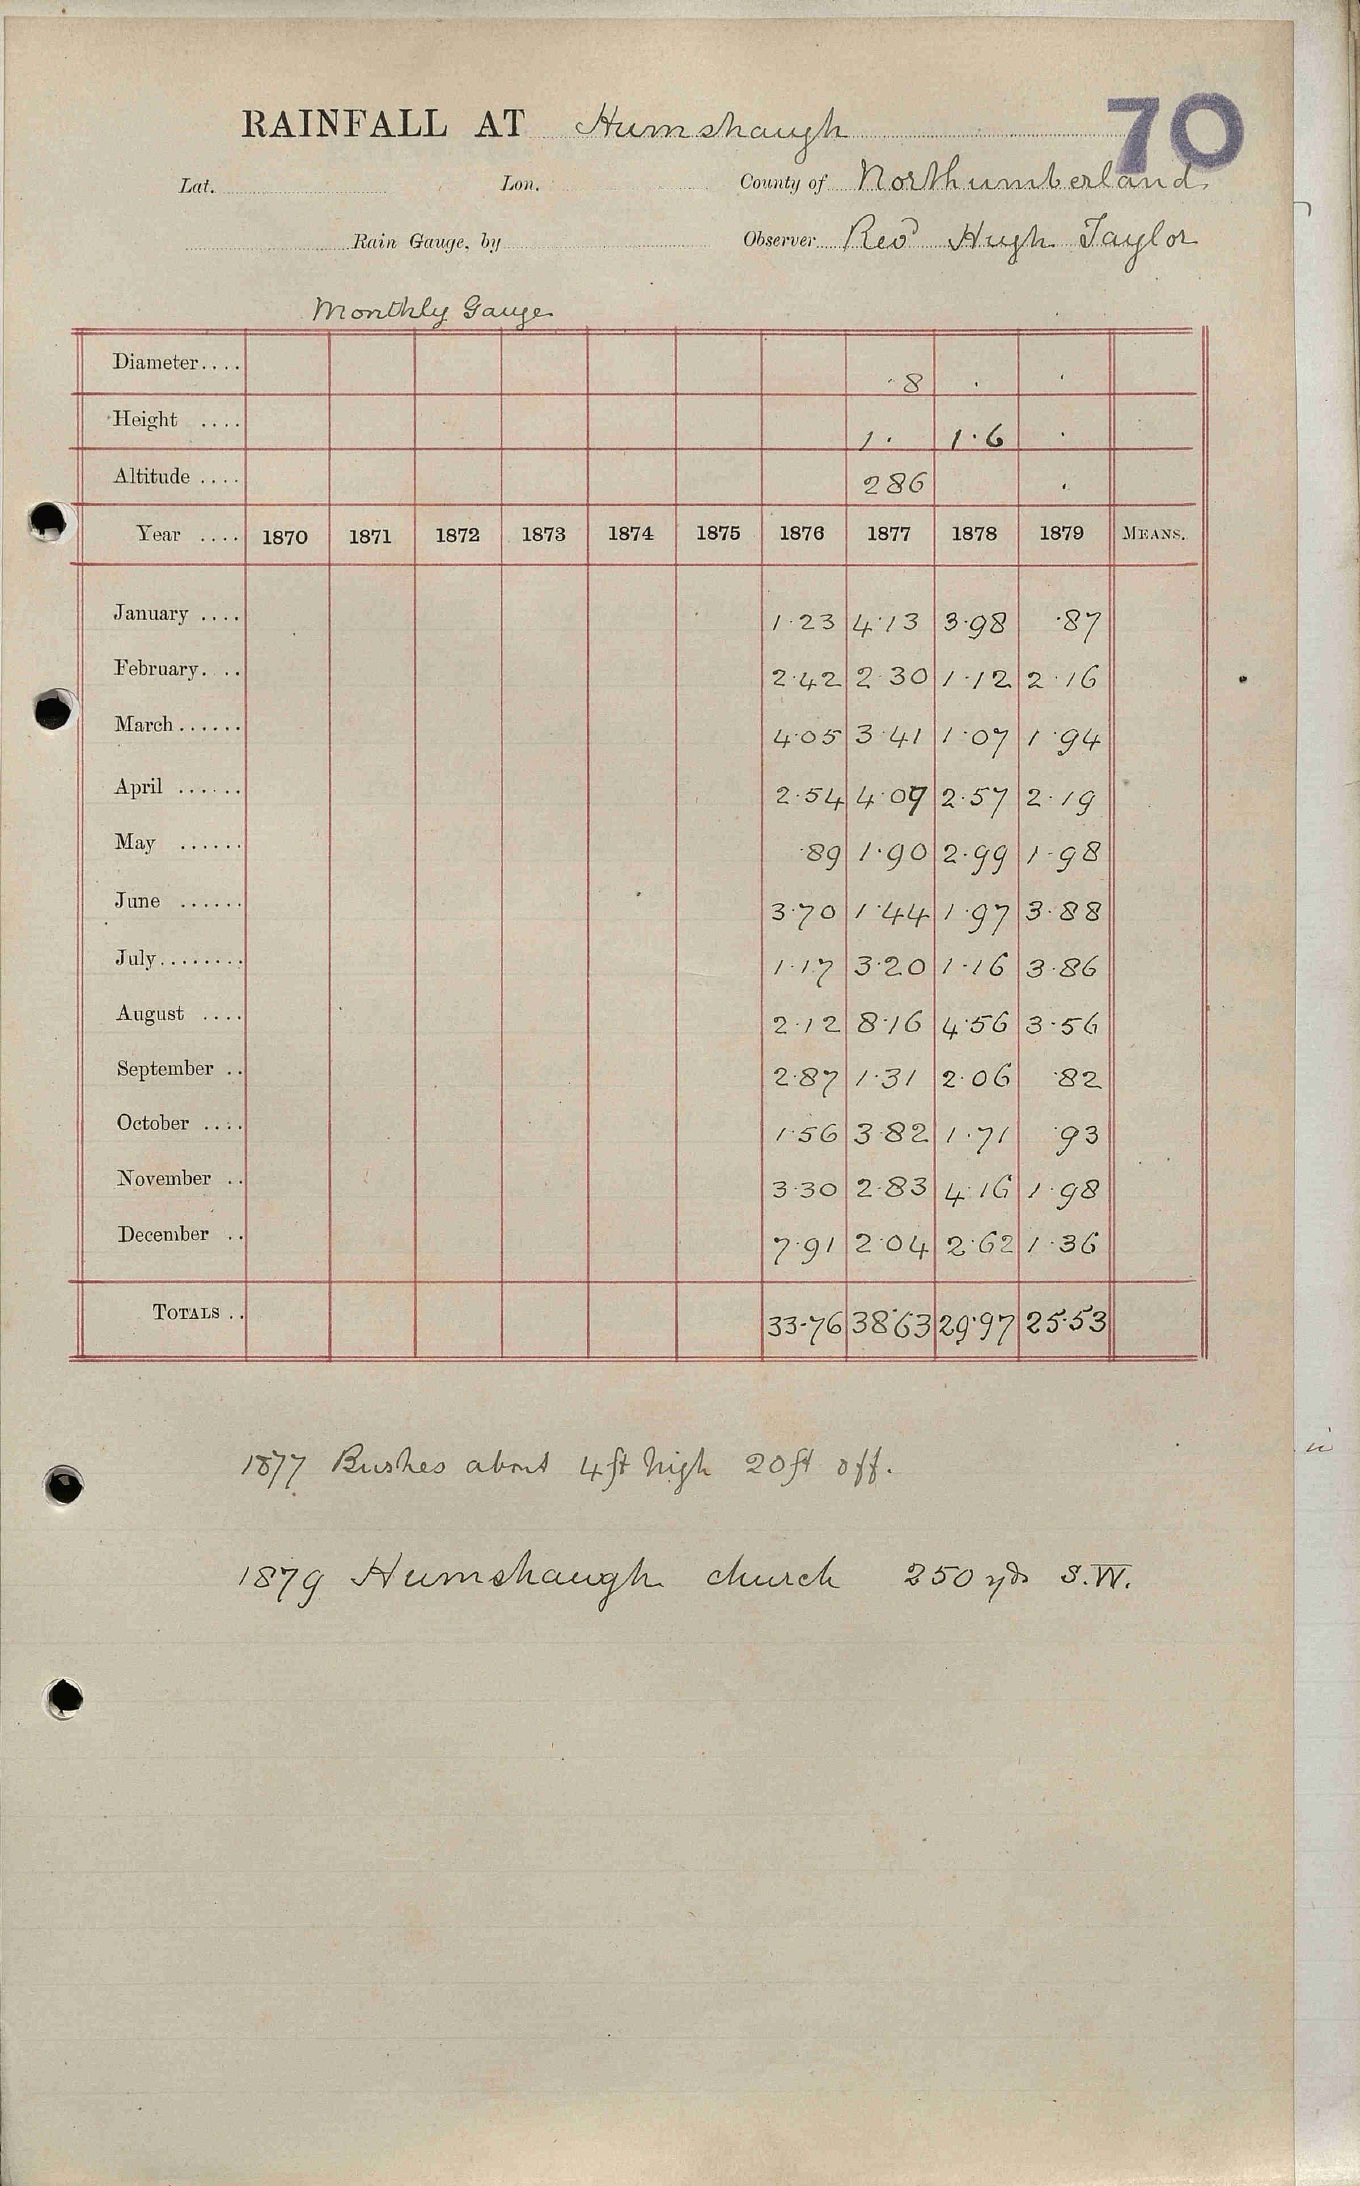 70
RAINFALL AT Humshaugh
Lat. Lon. County of Northumberland
Rain Gauge, by Observer Revd Hugh Taylor
Monthly Gauge
Diameter.... 8 . .
Height .... 1. 1.6 .
Altitude .... 286 .
Year .... 1870 1871 1872 1873 1874 1875 1876 1877 1878 1879 MEANS.
January .... 1.23 4.13 3.98 .87
February. .. 2.42 2.30 1.12 2.16
March...... 4.05 3.41 1.07 1.94
April ...... 2.54 4.09 2.57 2.19
May ...... .89 1.90 2.99 1.98
June ...... 3.70 1.44 1.97 3.88
July........ 1.17 3.20 1.16 3.86
August .... 2.12 8.16 4.56 3.56
September .. 2.87 1.31 2.06 .82
October .... 1.56 3.82 1.71 .93
November .. 3.30 2.83 4.16 1.98
December .. 7.91 2.04 2.62 1.36
TOTALS .. 33.76 38.63 29.97 25.53
1877 Bushes about 4ft high 20ft off.
1879 Humshaugh church 250 yds S.W.